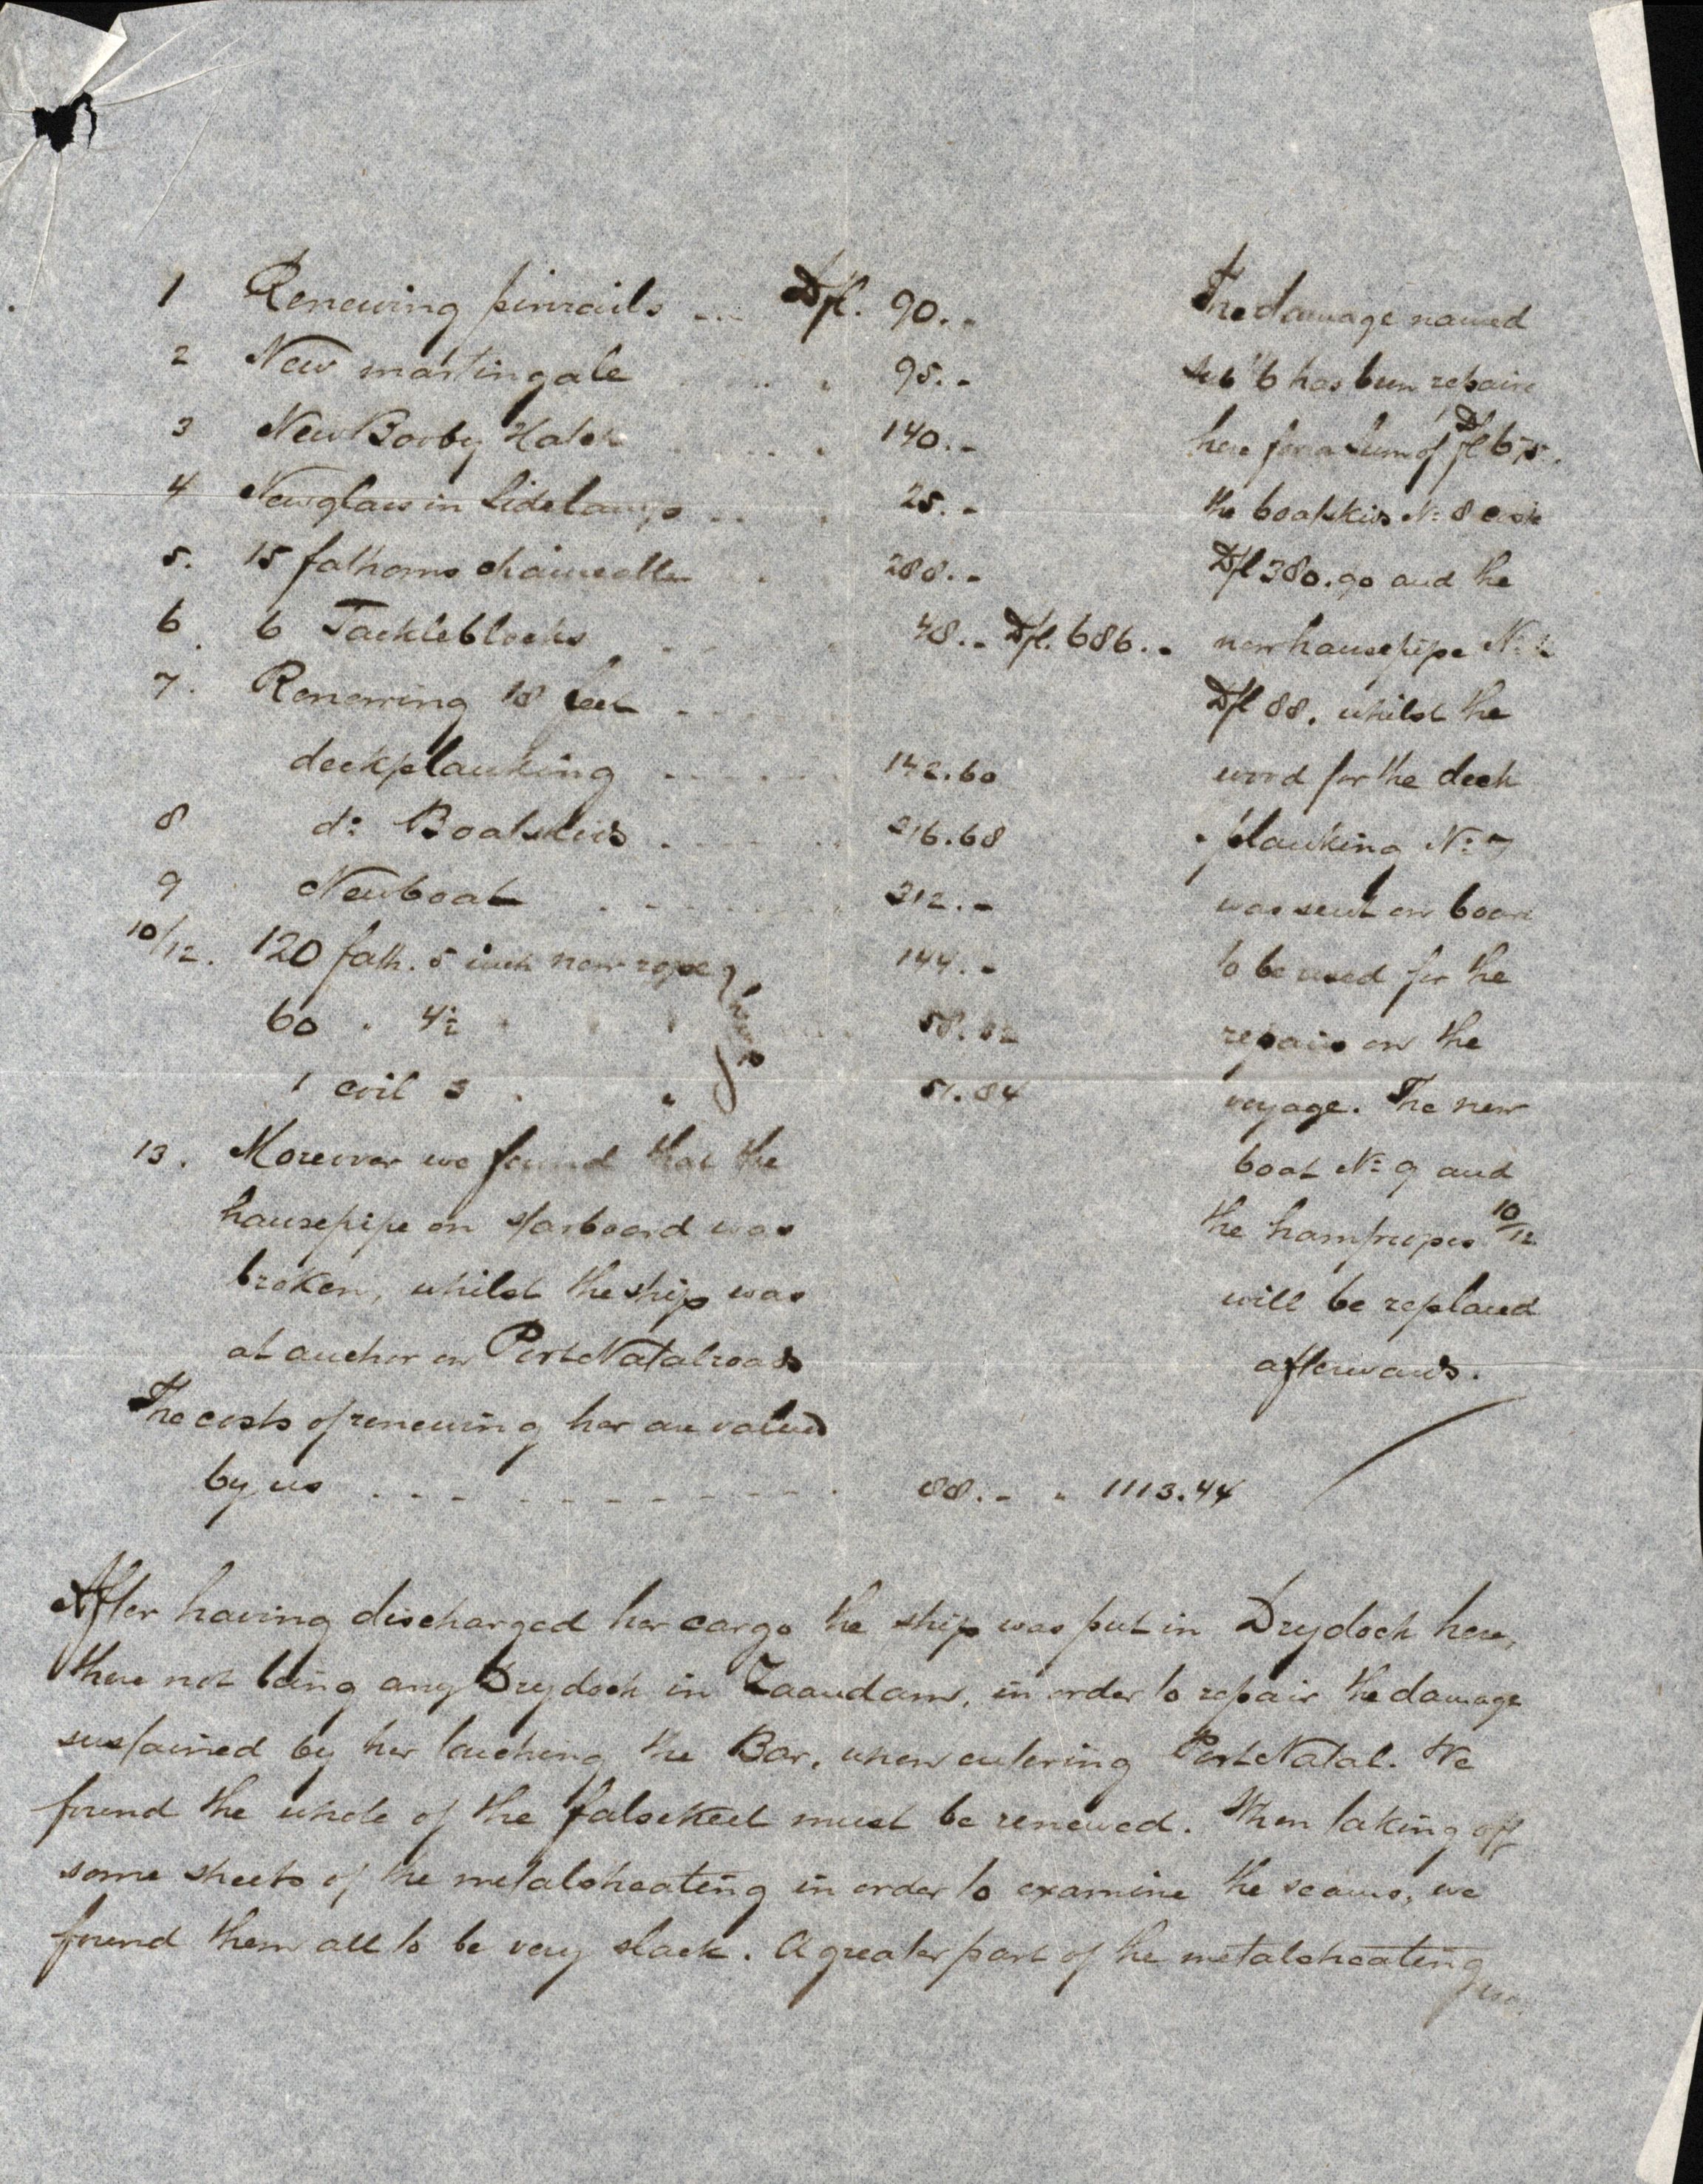 1 Renewing pinrails ... Dfl. 90.-
2 New martingale . . . . 95.-
3 New Booby Hatch . . . . 140.-
4 New glass in Sidelamps . . . 25.-
5. 15 fathoms chain . . 288.-
6. 6 Tackleblocks . . . 48.- Dfl. 686.-
7. Renewing 18 feet - - -
deckplanking - - - - - 142.60
8 do: Boatskids . - - - - 216.68
9 New boat . - - - - 312.-
10/12. 120 fath. 5 inch new rope 144.-
60 " 4½ " " " 58.32
1 coil 3 " " 51.84
13. Moreover we found that the
hausepipe on starboard was
broken, whilst the ship was
at anchor on Port Natal roads
The costs of renewing her are valued
by us - - - - - - - - - - 88.- " 1113.44
The damage named
1/6 has been repaire
here for a sum of Dfl 675.
the boatskids No: 8 cost
Dfl 380.90 and the
new hausepipe No:
Dfl 88. whilst the
wood for the deck
planking No: 7
was sent on board
to be used for the
repairs on the
voyage. The new
boat No: 9 and
the hawsropes 10/12
will be replaced
afterwards.
After having discharged her cargo the ship was put in Drydock here,
there not being any Drydock in Zaandam, in order to repair the damage
sustained by her touching the Bar, when entering Port Natal. We
found the whole of the falsekeel must be renewed. When taking off
some sheets of the metalsheating in order to examine the seams, we
found them all to be very slack. A greater part of the metalsheating